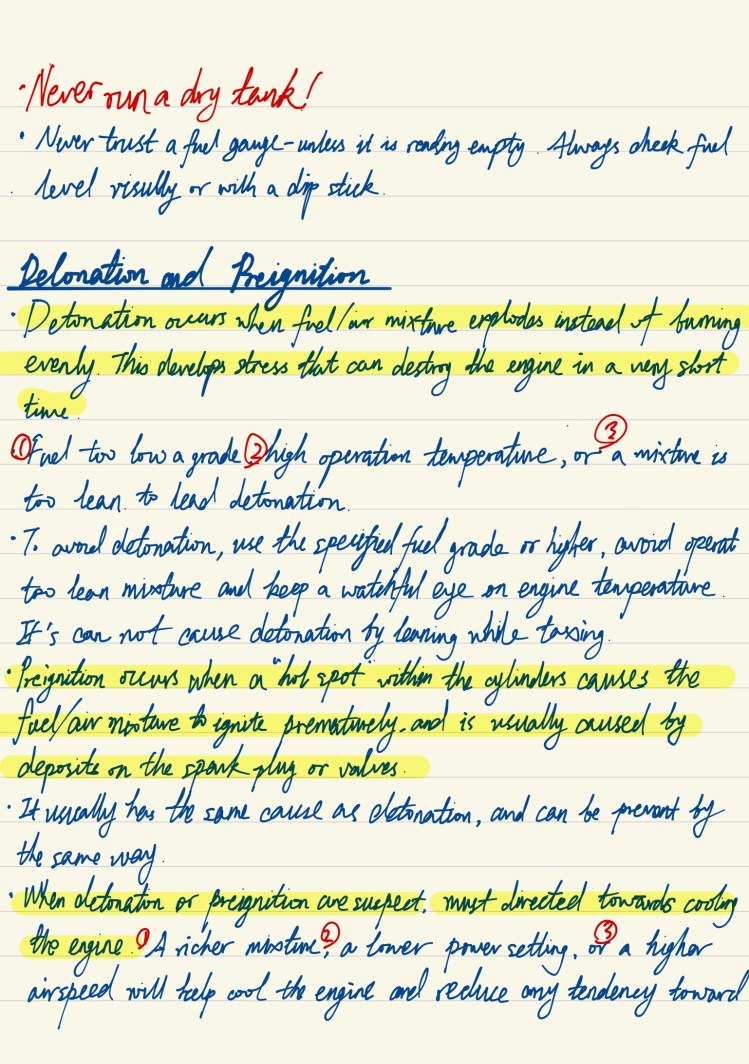 · Never run a dry tank!
· Never trust a fuel gauge - unless it is reading empty. Always check fuel
level visully or with a dip stick.
Detonation and Preignition
· Detonation occurs when fuel/air mixture explodes instead of burning
evenly. This develops stress that can destroy the engine in a very short
time.
① Fuel too low a grade ② high operation temperature, or ③ a mixture is
too lean to lead detonation.
· To avoid detonation, use the specified fuel grade or higher, avoid operat
too lean mixture and keep a watchful eye on engine temperature.
It's can not cause detonation by leaning while taxing.
· Preignition occurs when a "hot spot" within the cylinders causes the
fuel/air mixture to ignite prematurely, and is usually caused by
deposits on the spark plug or valves.
· It usually has the same cause as detonation, and can be prevent by
the same way.
· When detonation or preignition are suspect, must directed towards cooling
the engine. ① A richer mixture, ② a lower power setting, or ③ a higher
airspeed will help cool the engine and reduce any tendency toward